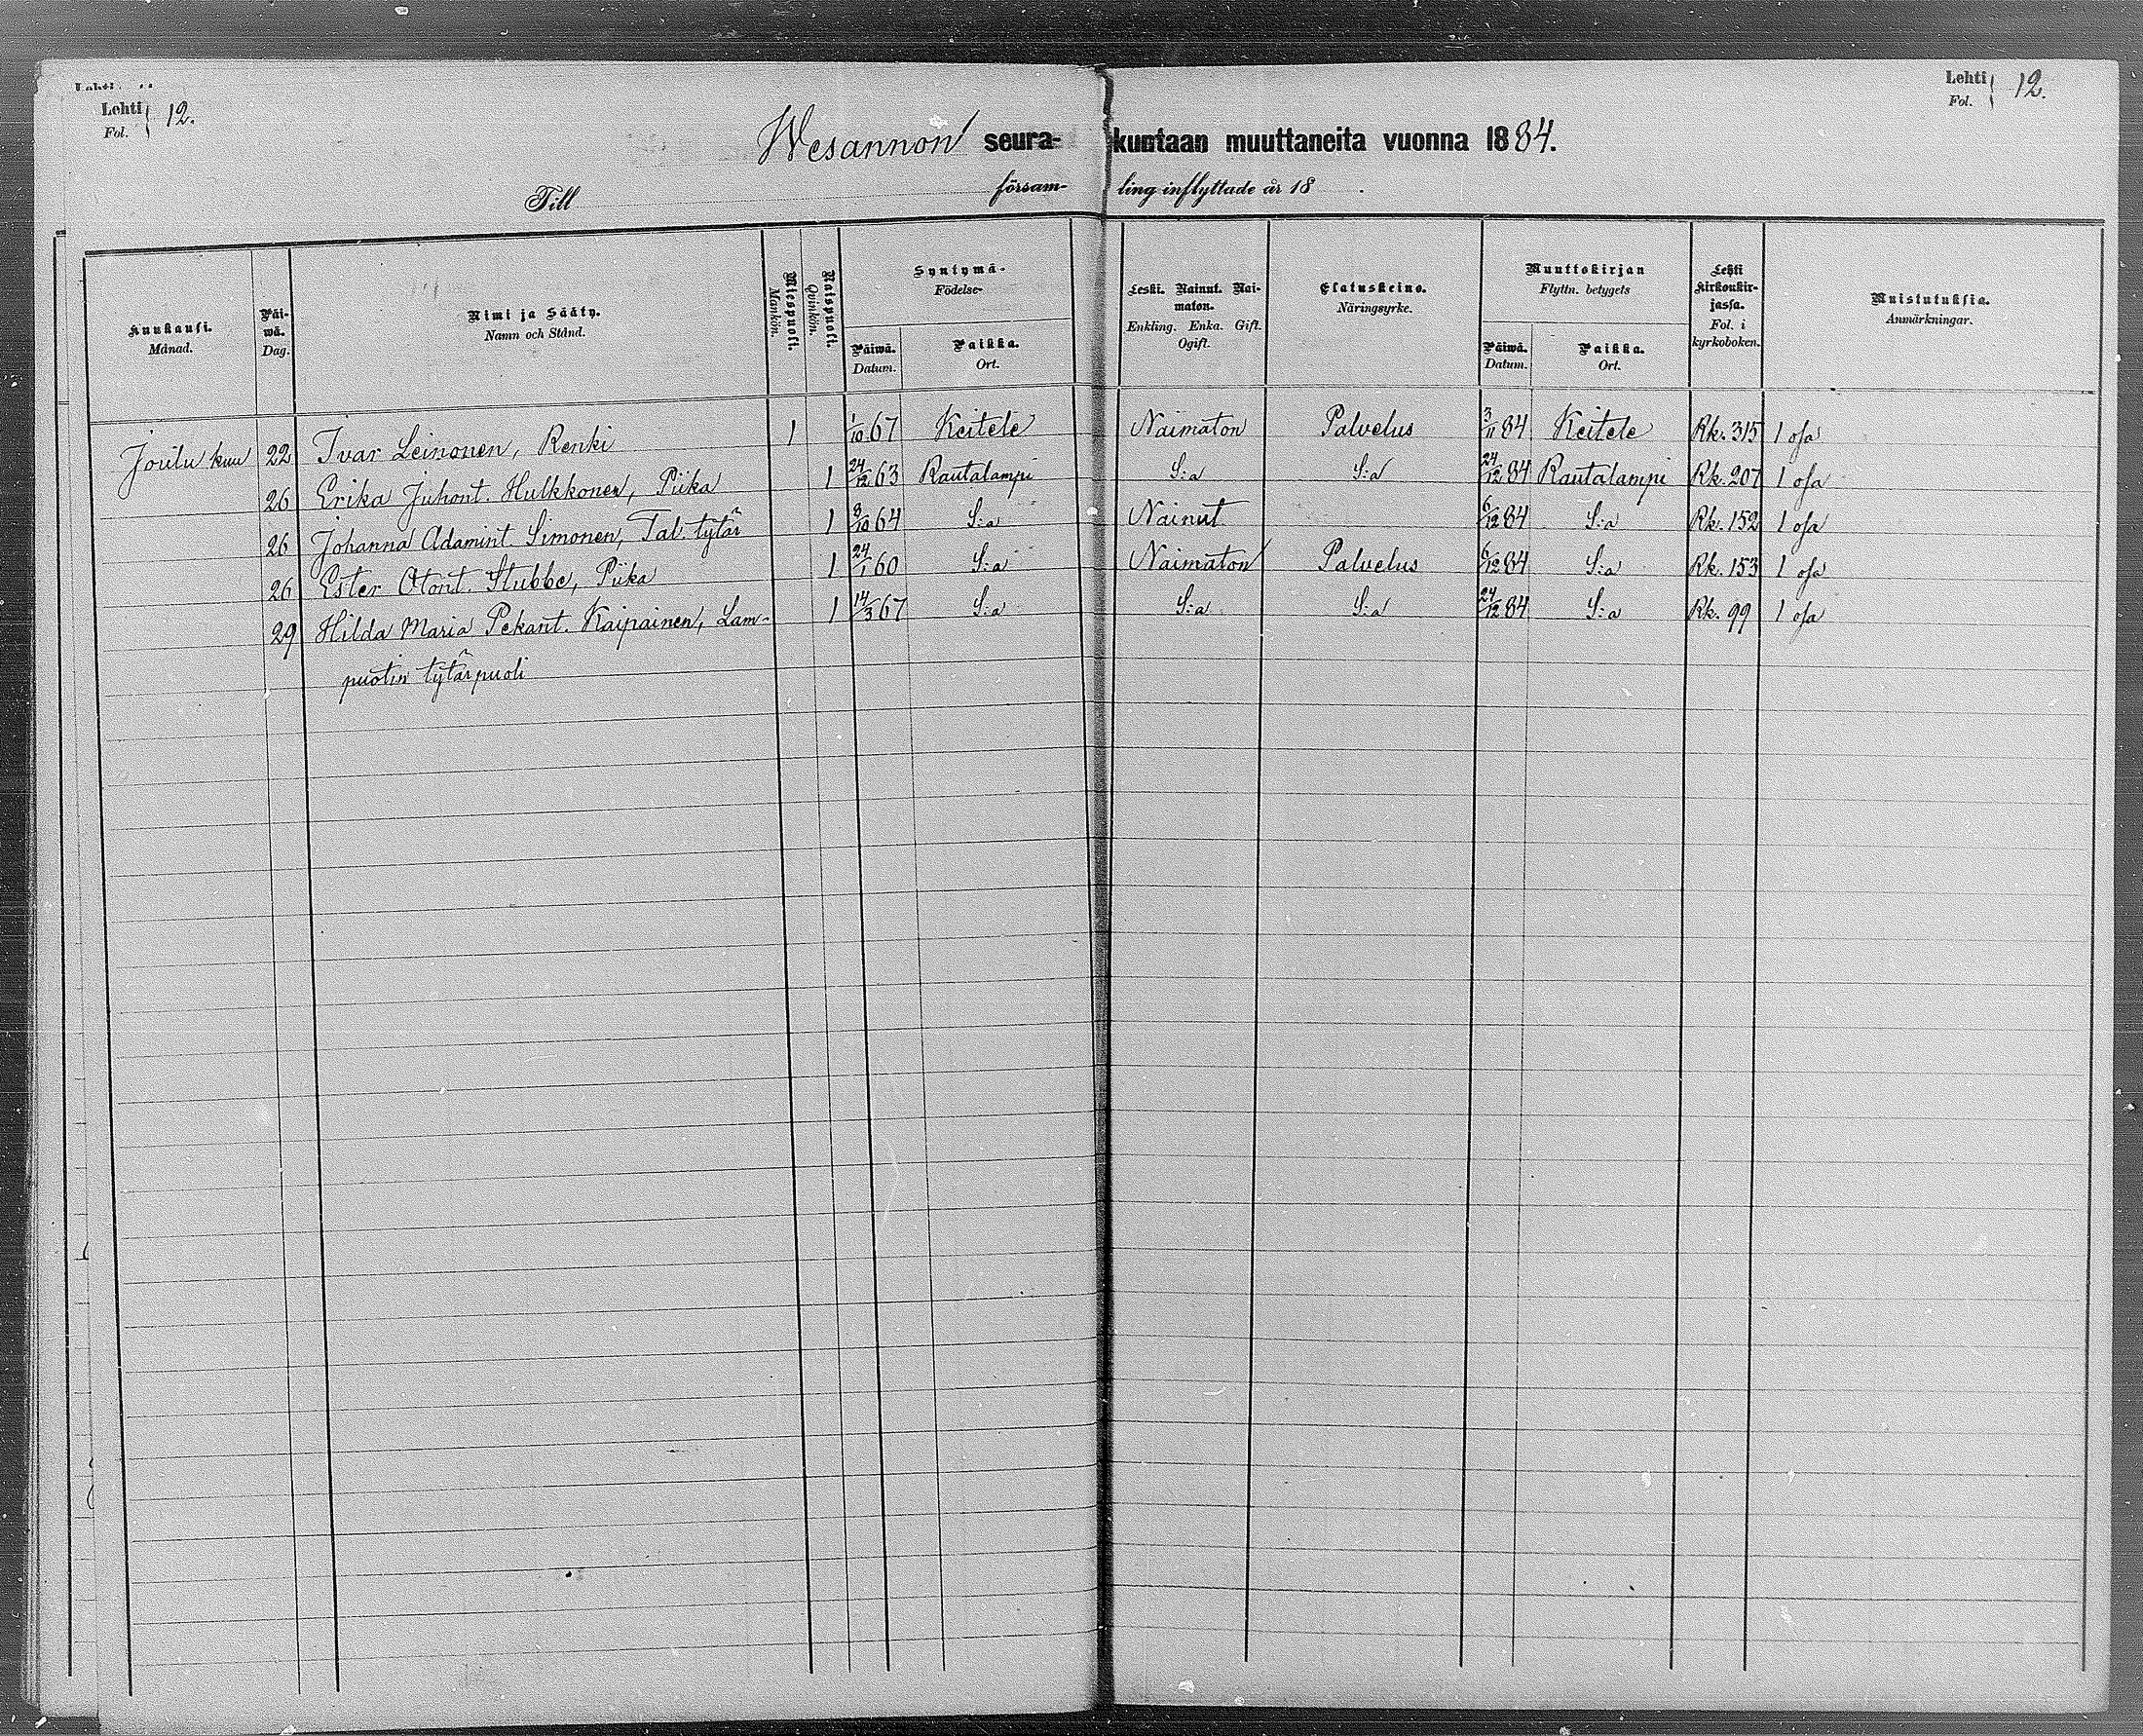 Lehti
Lehti Fol. 12.
Lehti Fol. 12.
Wesannon seura- kuntaan muuttaneita vuonna 1884.
Till försam- ling inflyttade år 18 .
Kuukausi. Månad. Päi-wä. Dag. Nimi ja Sääty. Namn och Stånd. Miespuoli. Mankön. Naispuoli. Qvinkön. Syntymä- Födelse- Päiwä. Datum. Paikka. Ort. Leski. Nainut. Nai-maton. Enkling. Enka. Gift. Ogift. Elatuskeino. Näringsyrke. Muuttokirjan Flyttn. betygets Päiwä. Datum. Paikka. Ort. Lehti kirkonkir-jassa. Fol. i kyrkoboken. Muistutuksia. Anmärkningar.
Joulu kuu 22 Ivar Leinonen, Renki 1 1/10 67 Keitele Naimaton Palvelus 3/11 84 Keitele Rk. 315 1 osa
26 Erika Juhont. Hulkkonen, Piika 1 24/12 63 Rautalampi S:a S:a 24/12 84 Rautalampi Rk. 207 1 osa
26 Johanna Adamint. Simonen, Tal. tytär 1 8/10 64 S:a Nainut 6/12 84 S:a Rk. 152 1 osa
26 Ester Otont. Stubbe, Piika 1 24/1 60 S:a Naimaton Palvelus 6/12 84 S:a Rk. 153 1 osa
29 Hilda Maria Pekant. Kaipainen, Lam- 1 14/3 67 S:a S:a S:a 24/12 84 S:a Rk. 99 1 osa
puotin tytärpuoli